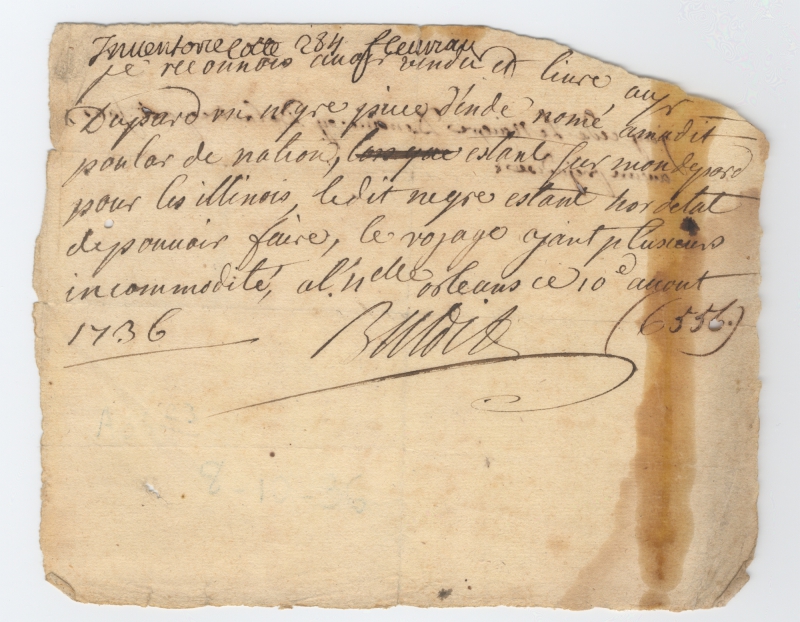 Inventorié cotte 284 fleuriau
je reconnois avoir vendu et livré au sr
Dupard un negre piece d'inde nomé amadit
poular de nation, lorsque estant sur mon depard
pour les illinois, le dit negre estant hor detat
de pouvoir faire, le voyage ayant plusieurs
incommodité, a la Nlle orleans ce 10e auout
1736 (6556.)